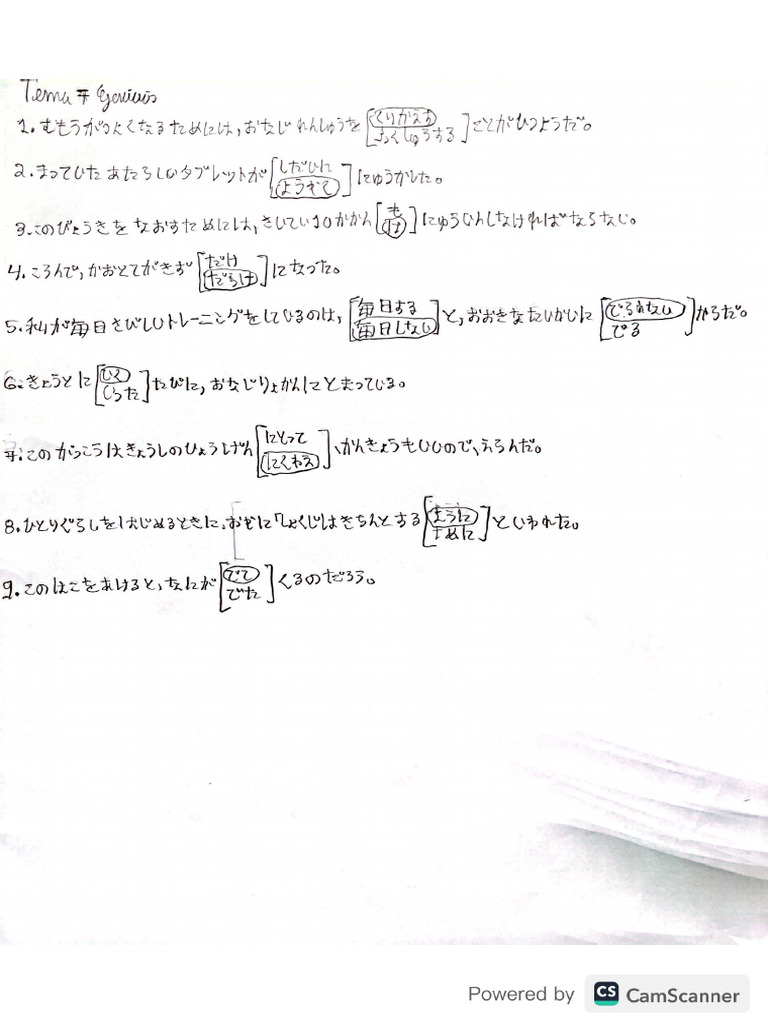 Tema 7
1. むもうがつよくなるためには、おなじれんしゅうを[くりかえす ふくしゅうする]ことがひつようだ。
2. まっていたあたらしいタブレットが[しだいに ようやく]にゅうかした。
3. このびょうきをなおすためには、さいてい10かかん[も は]にゅういんしなければならない。
4. ころんで、かおとてがきず[だけ だらけ]になった。
5. 私が毎日きびしいトレーニングをしているのは、[毎日する 毎日しない]と、おおきなたいかいに[でられない でる]からだ。
6. きょうとに[いく いった]たびに、おなじりょかんにとまっている。
7. このがっこうはきょうしのひょうげん[にとって にくわえ]、かんきょうもいいので、えらんだ。
8. ひとりぐらしをはじめるときに、おやに「しょくじはきちんとする[ように ために]といわれた。
9. このはこをあけると、なにが[でて でた]くるのだろう。
Powered by CS CamScanner